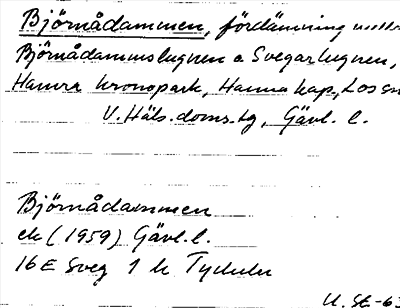 Björnådammen, fördämning mellan
Björnådammslugnen o Svegarlugnen,
Hamra kronopark, Hamra kap., Los sn
V. Häls. doms. tg, Gävl. l.
Björnådammen
ek (1959) Gävl. l.
16 E Sveg 1 h
U. SE-63